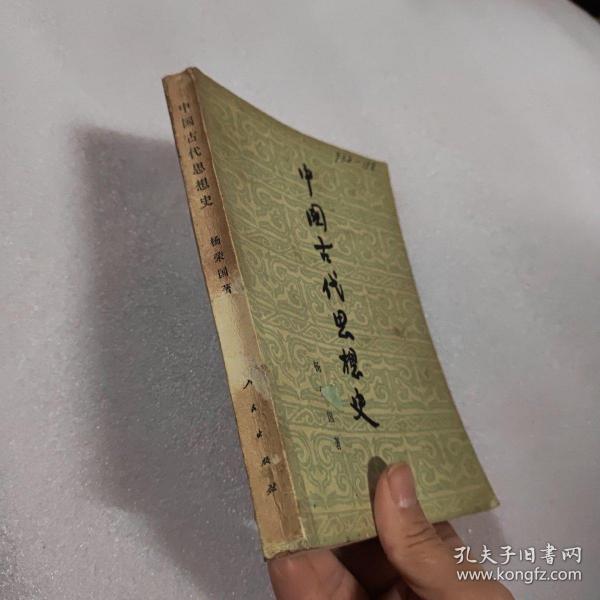 中国古代思想史
杨荣国著
人民出版社
中国古代思想史
杨 国著
孔夫子旧书网
www.kongfz.com